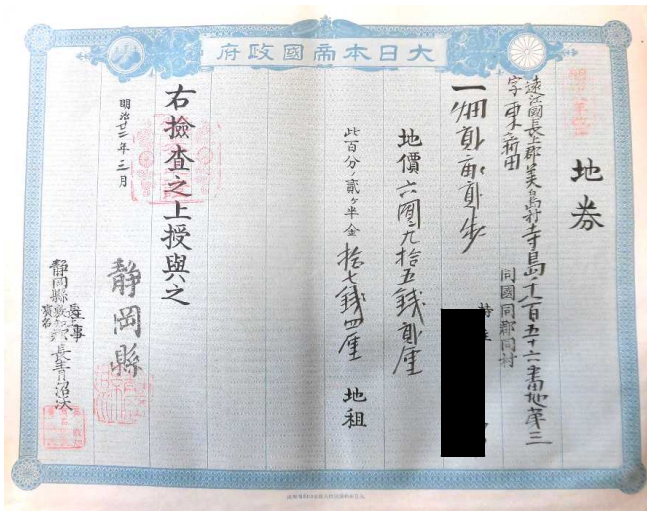 大日本帝國政府
地券
遠江國長上郡美島村寺島千九百五十六番地第三
字東新田
同國同郡同村
持主
一畑貳畝貳歩
地價六圓九拾五錢貳厘
此百分ノ貳ヶ半金拾七錢四厘 地租
右撿査之上授與之
明治廿二年三月
靜岡縣
靜岡縣